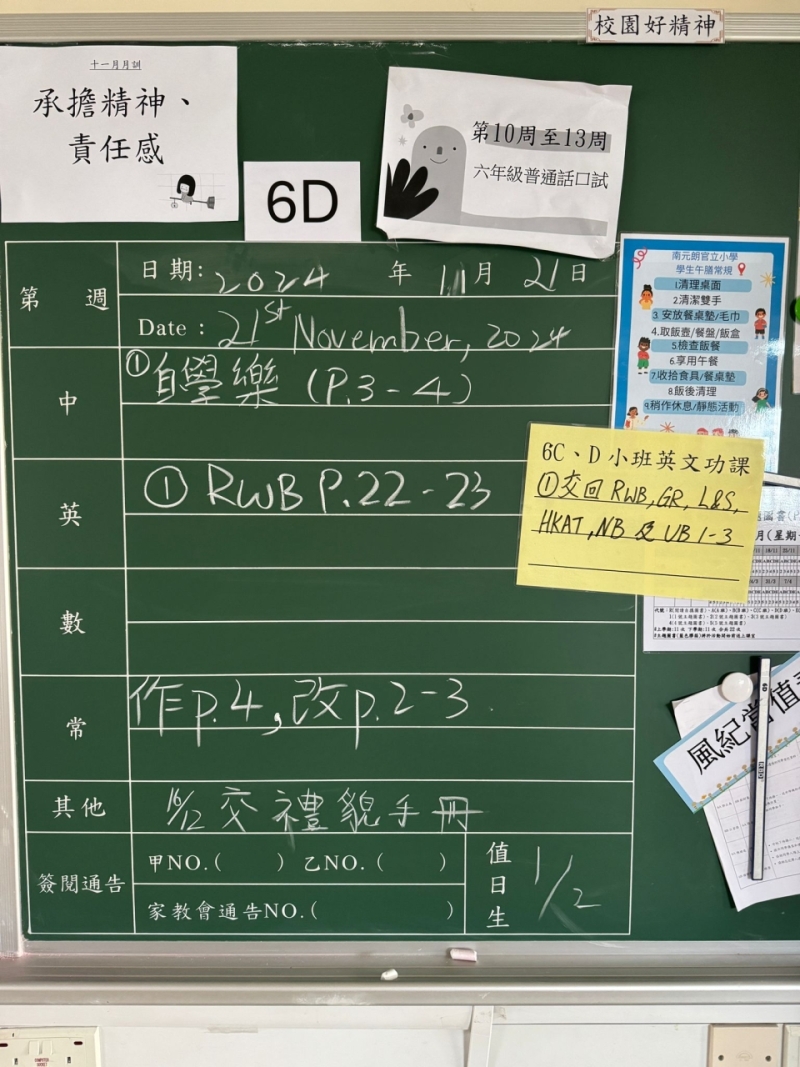 校園好精神
十一月月訓
承擔精神、
責任感
6D
第10周至13周
六年級普通話口試
第 週
日期: 2024 年 11月 21日
Date : 21st November, 2024
中
①自學樂 (P.3-4)
英
① RWB P.22-23
數
常
作p.4,改p.2-3.
其他
16/12 交禮貌手冊
簽閱通告
甲NO.( ) 乙NO.( )
家教會通告NO.( )
值日生
1/2
南元朗官立小學
學生午膳常規
1.清理桌面
2.清潔雙手
3. 安放餐桌墊/毛巾
4.取飯壺/餐盤/飯盒
5.檢查飯餐
6.享用午餐
7.收拾食具/餐桌墊
8.飯後清理
9.稍作休息/靜態活動
6C、D 小班英文功課
①交回 RWB, GR, L&S,
HKAT, NB 及 UB 1-3
月(星期
風紀當值